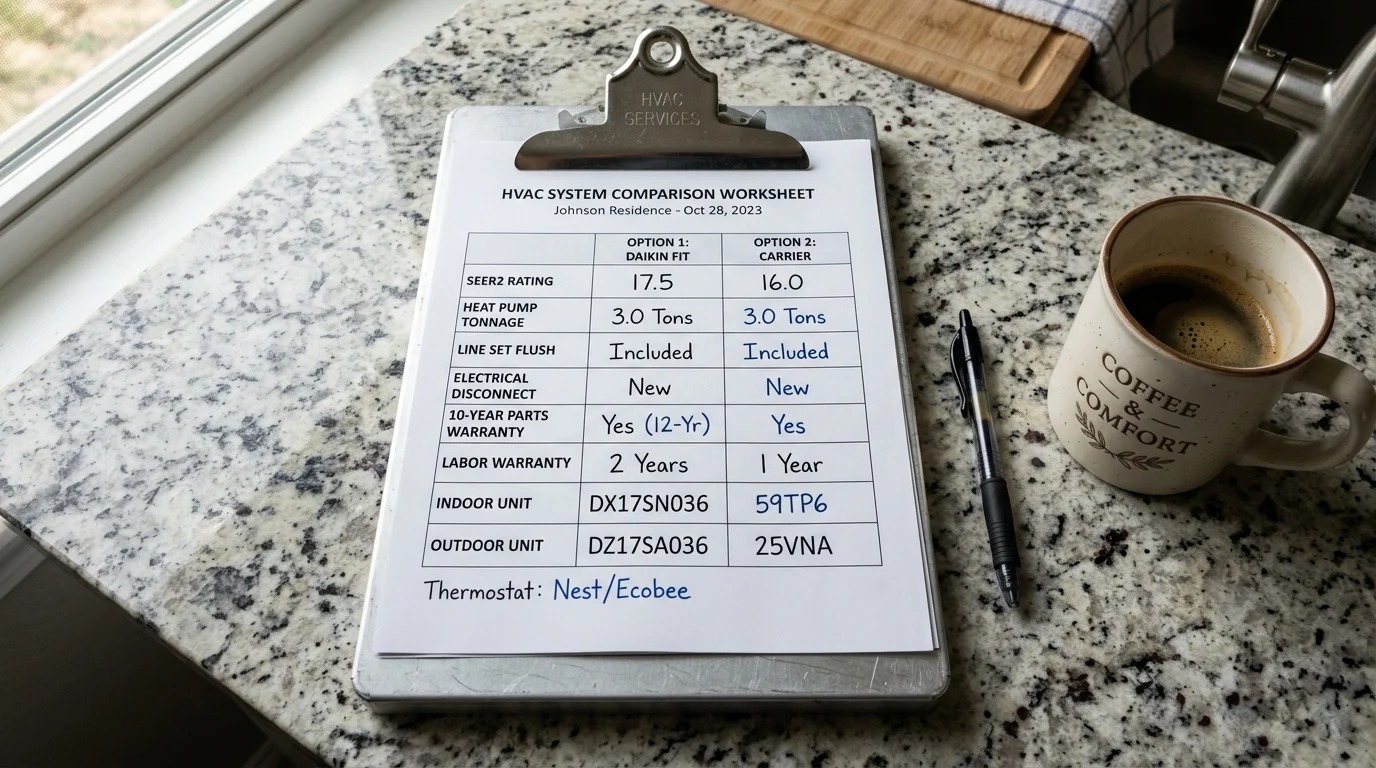 HVAC
SERVICES
HVAC SYSTEM COMPARISON WORKSHEET
Johnson Residence - Oct 28, 2023
OPTION 1:
DAIKIN FIT
OPTION 2:
CARRIER
SEER2 RATING 17.5 16.0
HEAT PUMP
TONNAGE 3.0 Tons 3.0 Tons
LINE SET FLUSH Included Included
ELECTRICAL
DISCONNECT New New
10-YEAR PARTS
WARRANTY Yes (12-Yr) Yes
LABOR WARRANTY 2 Years 1 Year
INDOOR UNIT DX17SN036 59TP6
OUTDOOR UNIT DZ17SA036 25VNA
Thermostat: Nest/Ecobee
COFFEE
&
COMFORT